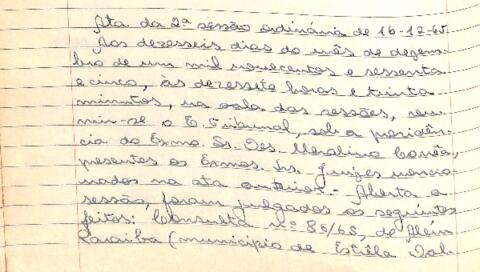 Ata da 2ª sessão ordinária de 16-12-65
Aos dezesseis dias do mês de dezem-
bro de um mil novecentos e sessenta
e cinco, às dezessete horas e trinta
minutos, na sala das sessões, reu
niu-se o E. Tribunal, sob a presidên-
cia do Exmo. Sr. Des. Merolino Corrêa,
presentes os Exmos. Srs. Juizes mencio
nados na ata anterior. - Aberta a
sessão, foram julgados os seguintes
feitos: Consulta nº 86/65, de Além
Paraíba (município de Estrêla Dal